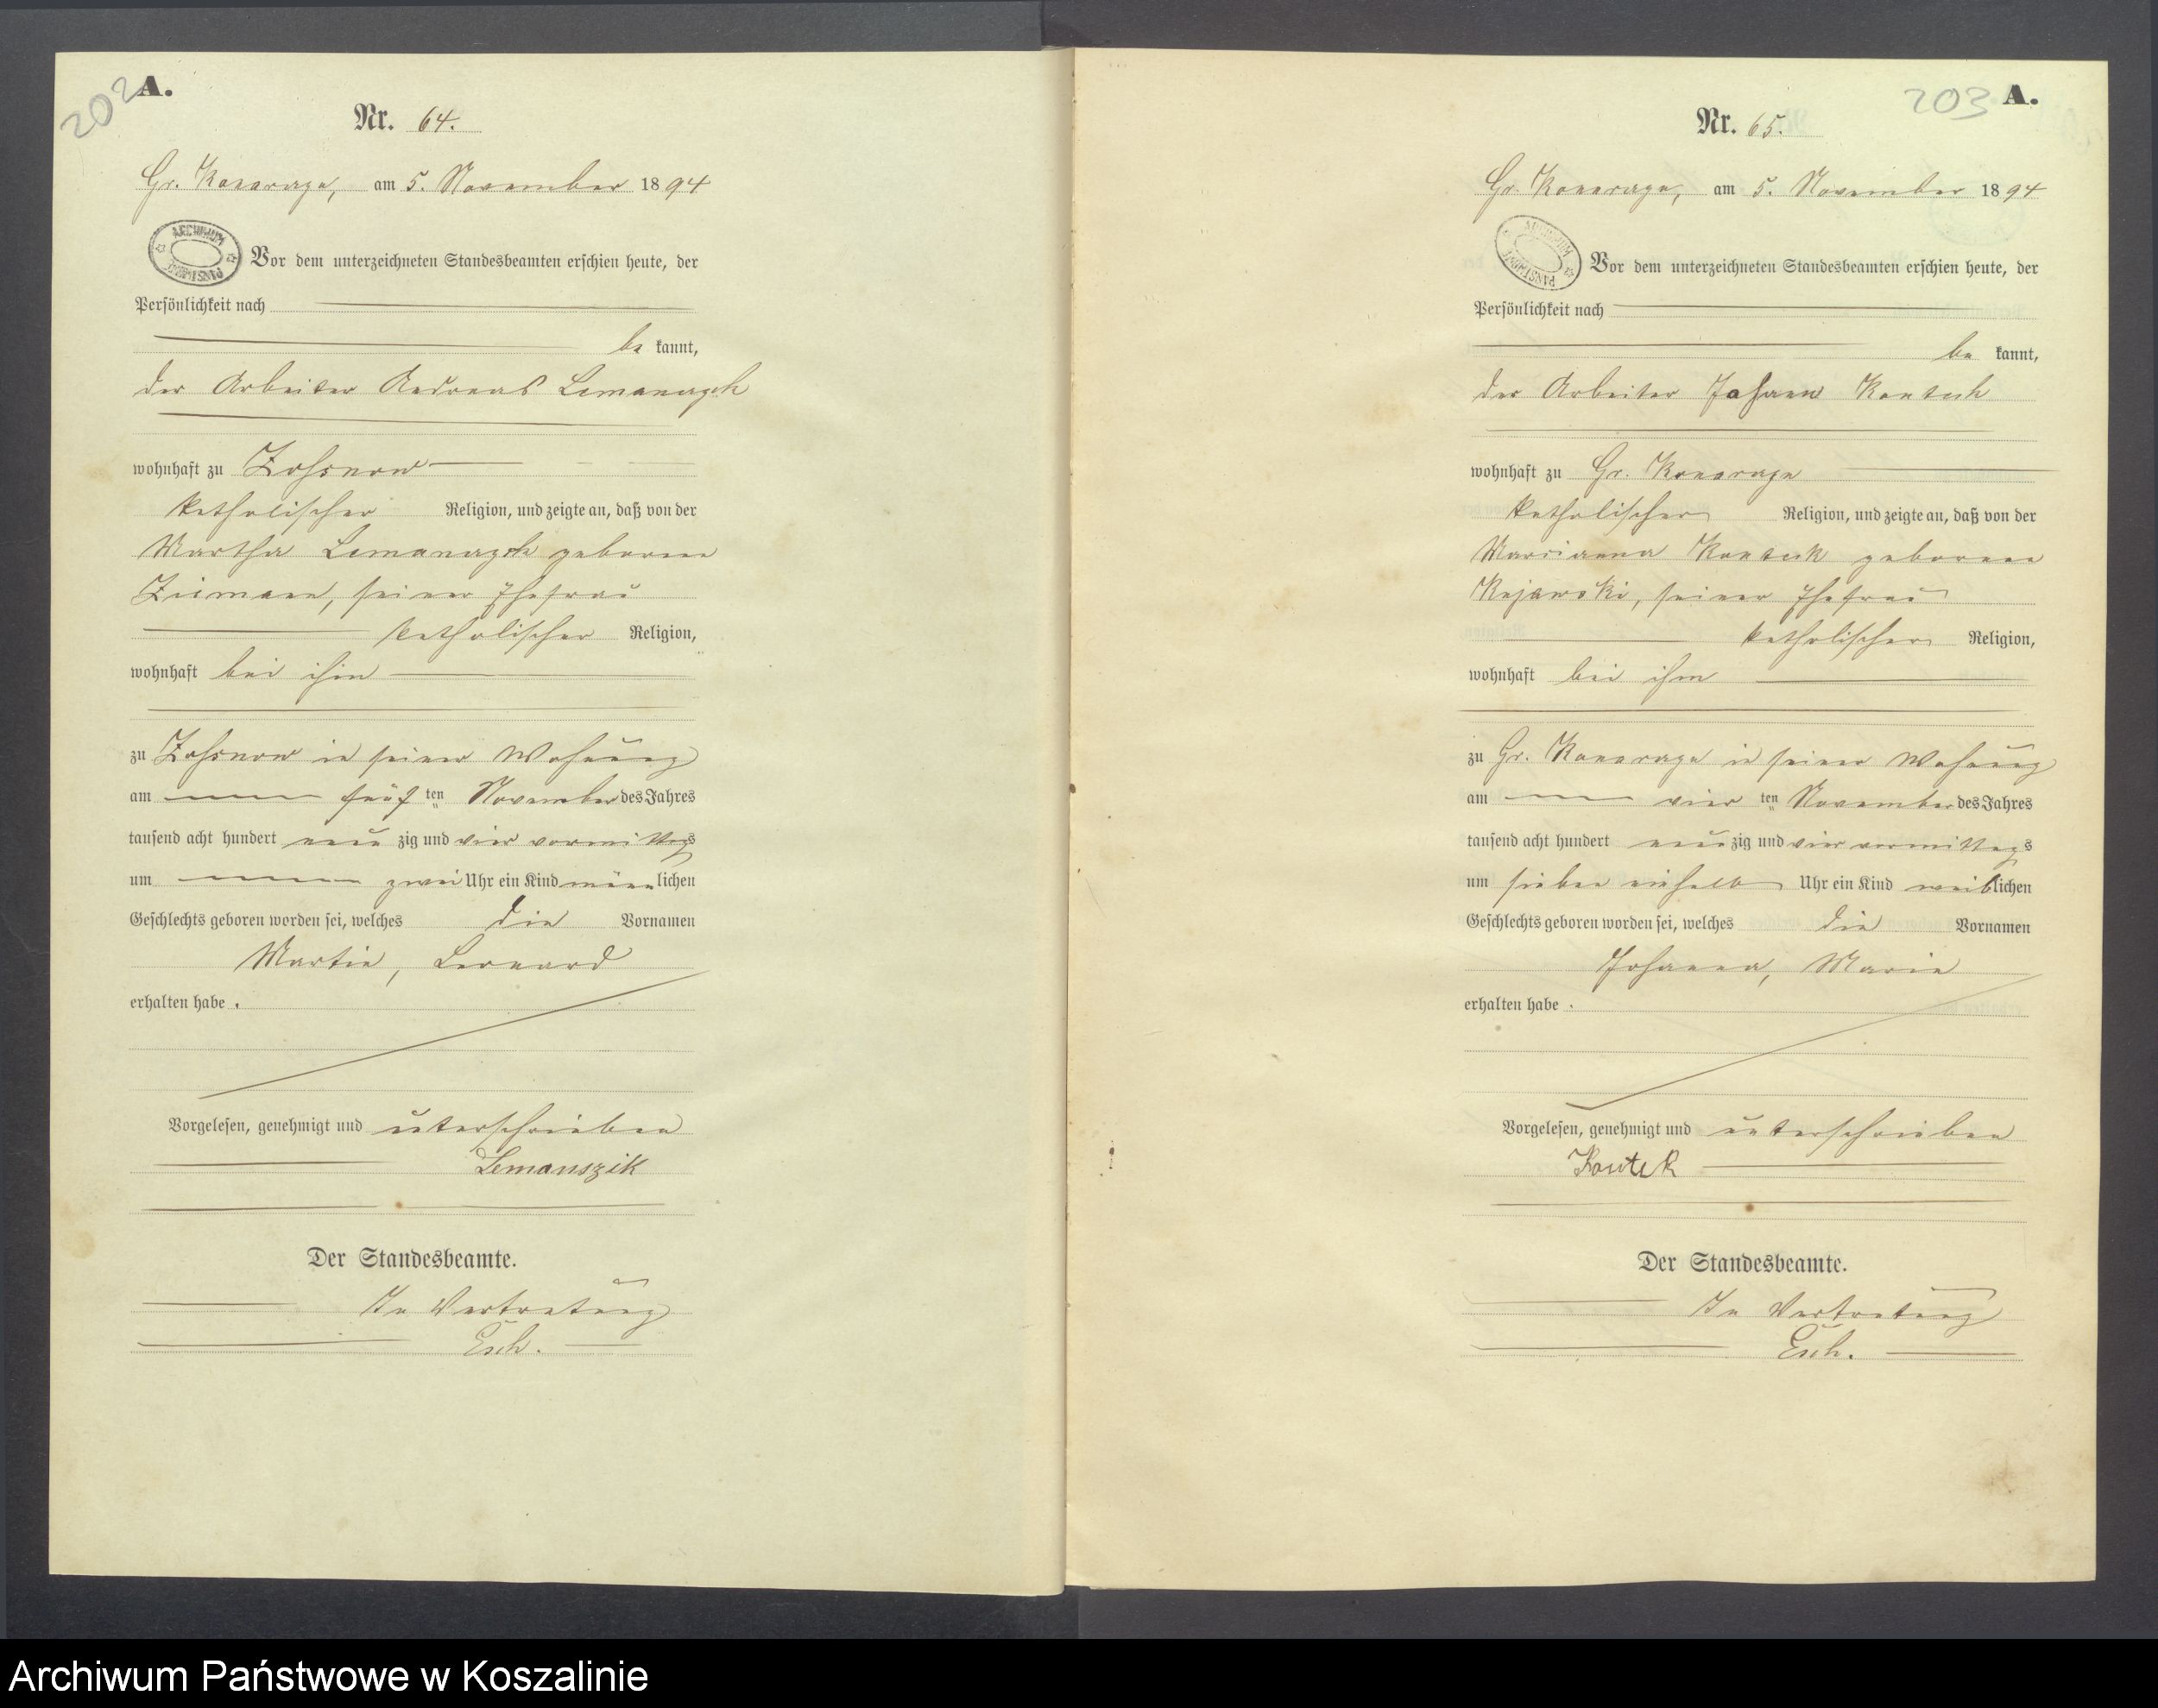 202 A.
Nr. 64.
Gr. Konarzyn, am 5. November 1894
ARCHIWUM PAŃSTWOWE
Vor dem unterzeichneten Standesbeamten erschien heute, der
Persönlichkeit nach
be kannt,
der Arbeiter Andreas Lemanczyk
wohnhaft zu
katholischer Religion, und zeigte an, daß von der
Martha Lemanczyk geborene
seiner Ehefrau
katholischer Religion,
wohnhaft bei ihm
zu in seiner Wohnung
am fünf ten November des Jahres
tausend acht hundert neun zig und vier vormittags
um zwei Uhr ein Kind männlichen
Geschlechts geboren worden sei, welches die Vornamen
Martin, Leonard
erhalten habe.
Vorgelesen, genehmigt und unterschrieben
Lemanszik
Der Standesbeamte.
In Vertretung
Esch.
203 A.
Nr. 65.
Gr. Konarzyn, am 5. November 1894
ARCHIWUM PAŃSTWOWE
Vor dem unterzeichneten Standesbeamten erschien heute, der
Persönlichkeit nach
be kannt,
der Arbeiter Johann Kontek
wohnhaft zu Gr. Konarzyn
katholischer Religion, und zeigte an, daß von der
Marianna Kontek geborene
Kujawski, seiner Ehefrau
katholischer Religion,
wohnhaft bei ihm
zu Gr. Konarzyn in seiner Wohnung
am vier ten November des Jahres
tausend acht hundert neun zig und vier vormittags
um sieben einhalb Uhr ein Kind weiblichen
Geschlechts geboren worden sei, welches die Vornamen
Johanna, Marie
erhalten habe.
Vorgelesen, genehmigt und unterschrieben
Kontek
Der Standesbeamte.
In Vertretung
Esch.
Archiwum Państwowe w Koszalinie